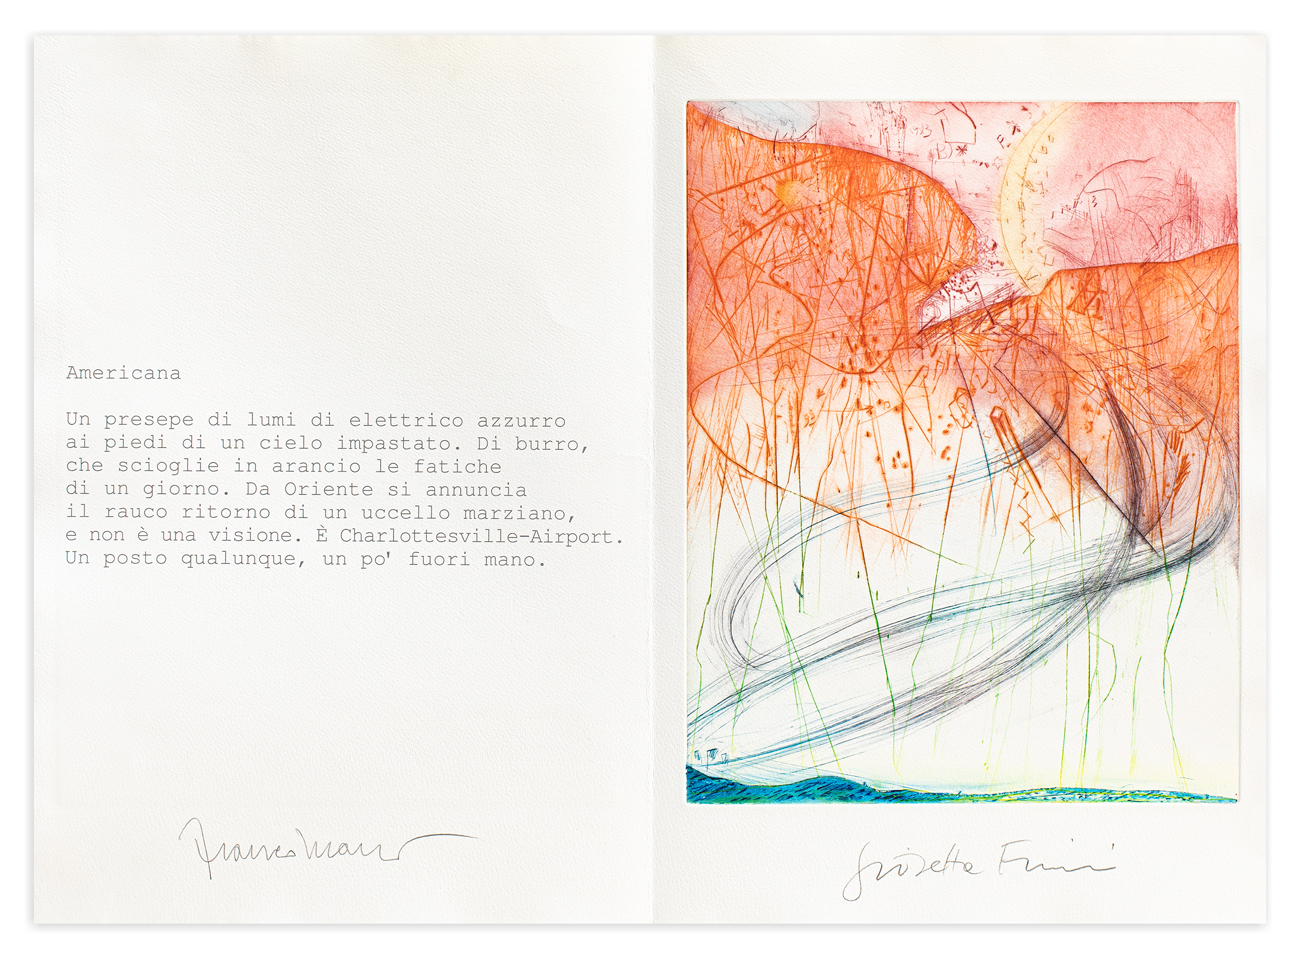 Americana
Un presepe di lumi di elettrico azzurro
ai piedi di un cielo impastato. Di burro,
che scioglie in arancio le fatiche
di un giorno. Da Oriente si annuncia
il rauco ritorno di un uccello marziano,
e non è una visione. È Charlottesville-Airport.
Un posto qualunque, un po' fuori mano.
Giosetta Fioroni